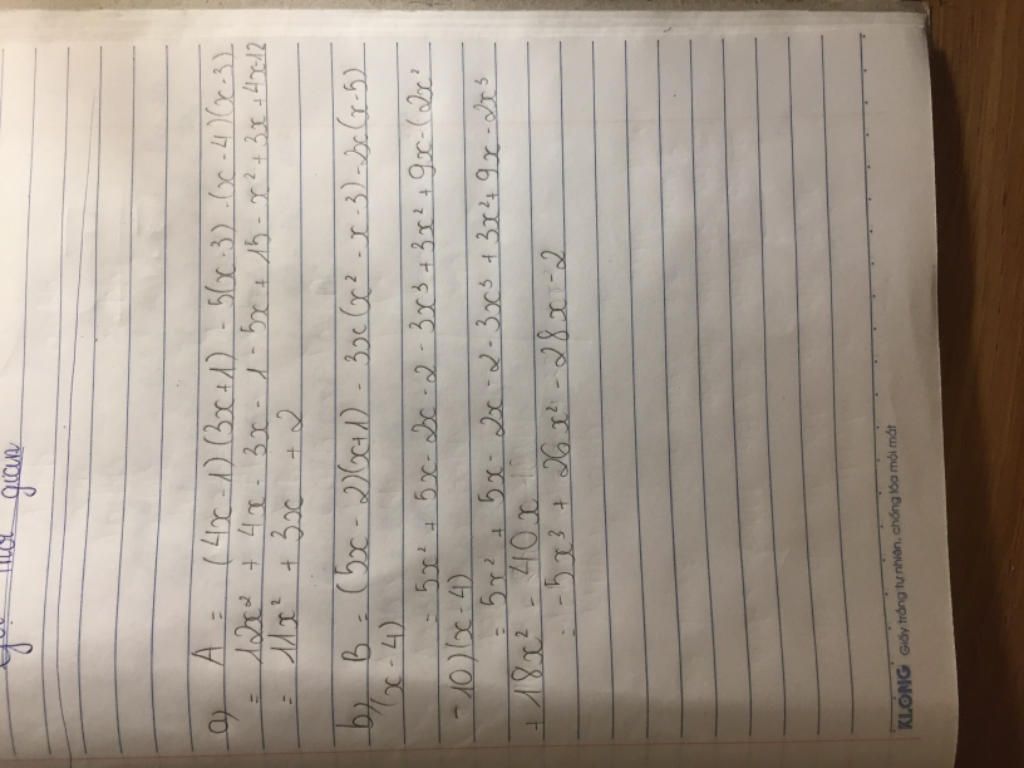 a) A = (4x-1)(3x+1) - 5(x-3) - (x-4)(x-3)
= 12x² + 4x - 3x - 1 - 5x + 15 - x² + 3x + 4x-12
= 11x² + 3x + 2
b) B = (5x-2)(x+1) - 3x(x² - x - 3) - 2x(x-5)
(x-4)
= 5x² + 5x - 2x - 2 - 3x³ + 3x² + 9x - (2x²
-10)(x-4)
= 5x² + 5x - 2x - 2 - 3x³ + 3x² + 9x - 2x³
+ 18x² - 40x
= -5x³ + 26x² - 28x - 2
KLONG Giấy trắng tự nhiên, chống lóa mỏi mắt